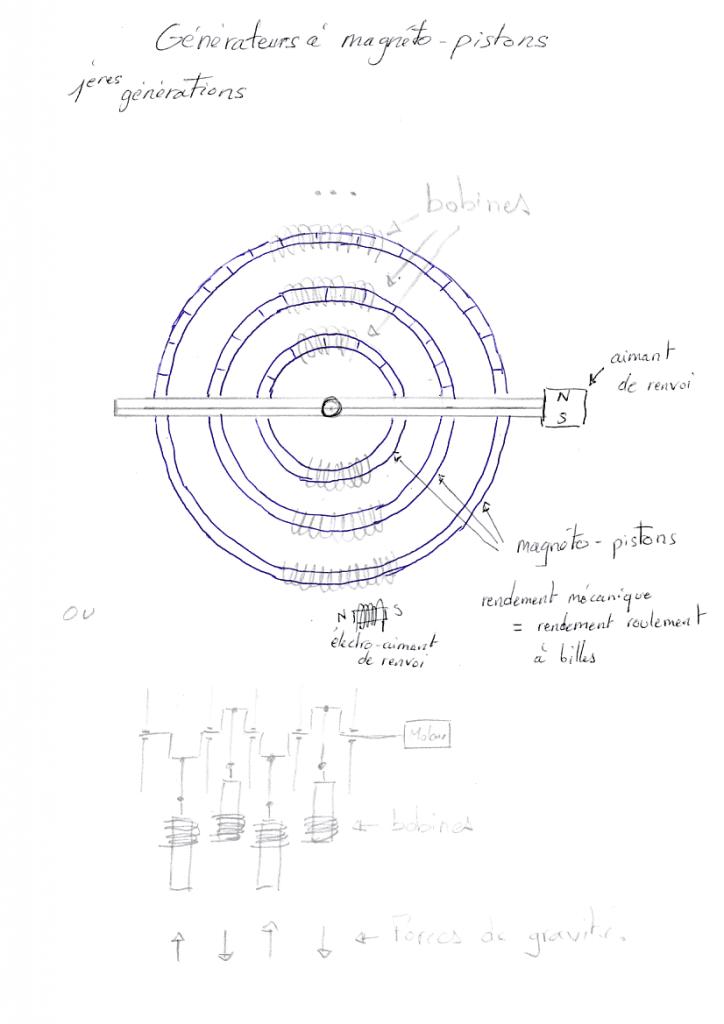 Générateurs à magnéto-pistons
1ères générations
...
bobines
aimant
de renvoi
N
S
magnéto-pistons
rendement mécanique
= rendement roulement
à billes
OU
N S
électro-aimant
de renvoi
Moteur
bobines
Forces de gravité.